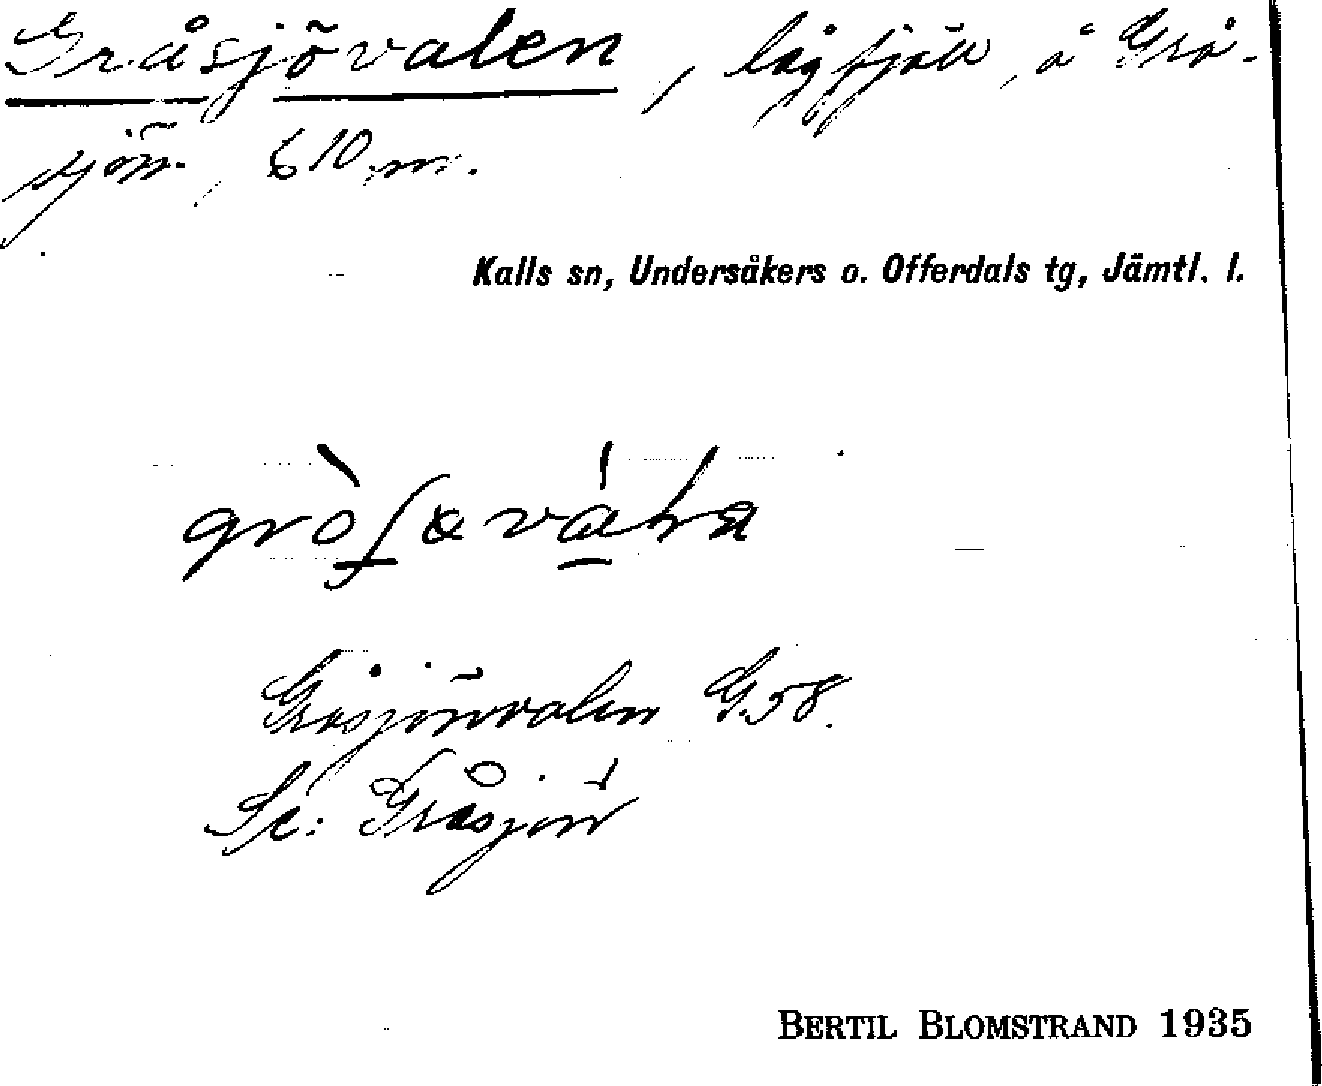 Gråsjövalen, lågfjäll, å Grå-
sjön, 610 m.
Kalls sn, Undersåkers o. Offerdals tg, Jämtl. l.
Gråsjönvalen G58.
Se: Gråsjön
BERTIL BLOMSTRAND 1935